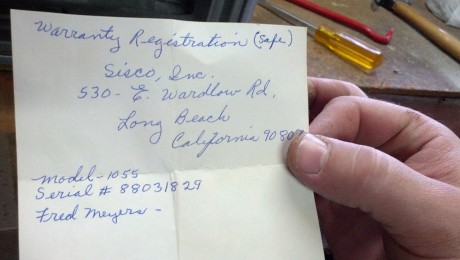 Warranty Registration (safe)
Sisco, Inc.
530 - E. Wardlow Rd.
Long Beach
California 90807
model - 1055
Serial # 88031829
Fred Meyers -